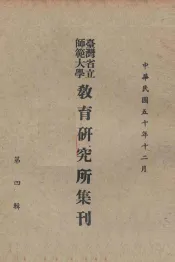 中華民國五十年十二月
臺灣省立
師範大學
教育研究所集刊
第四輯